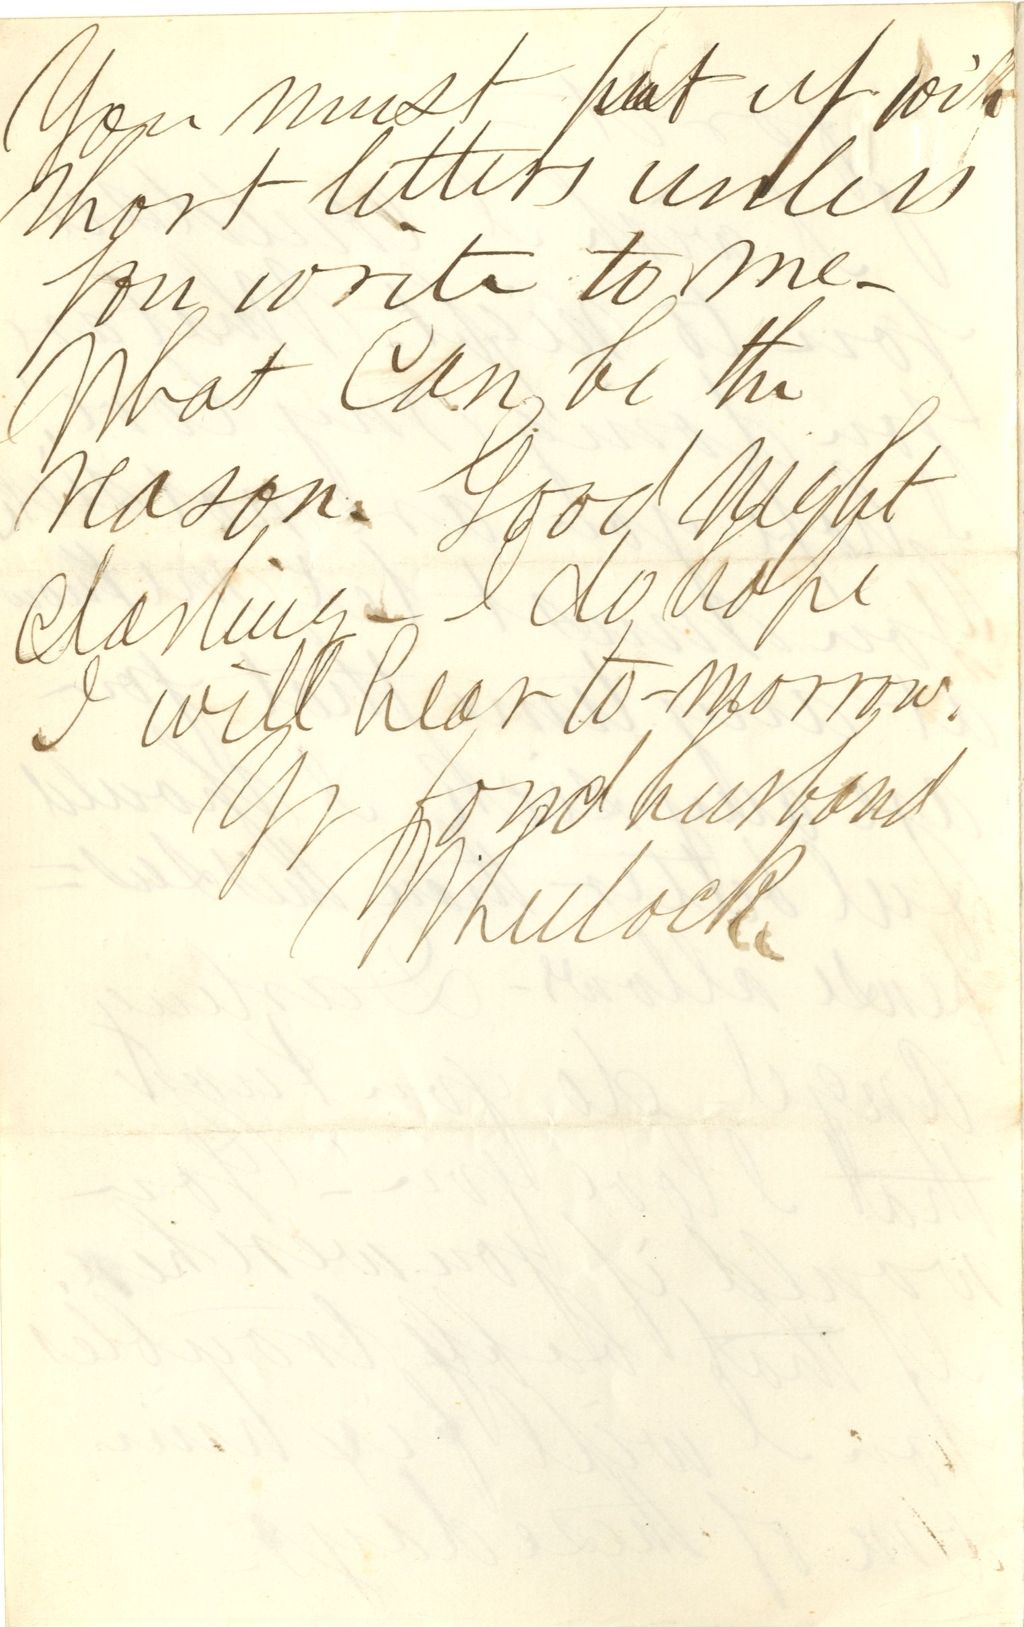 You must put up with
short letters unless
you write to me-
What can be the
reason. Good night
darling- I do hope
I will hear to-morrow.
Yr fond husband
Wheelock